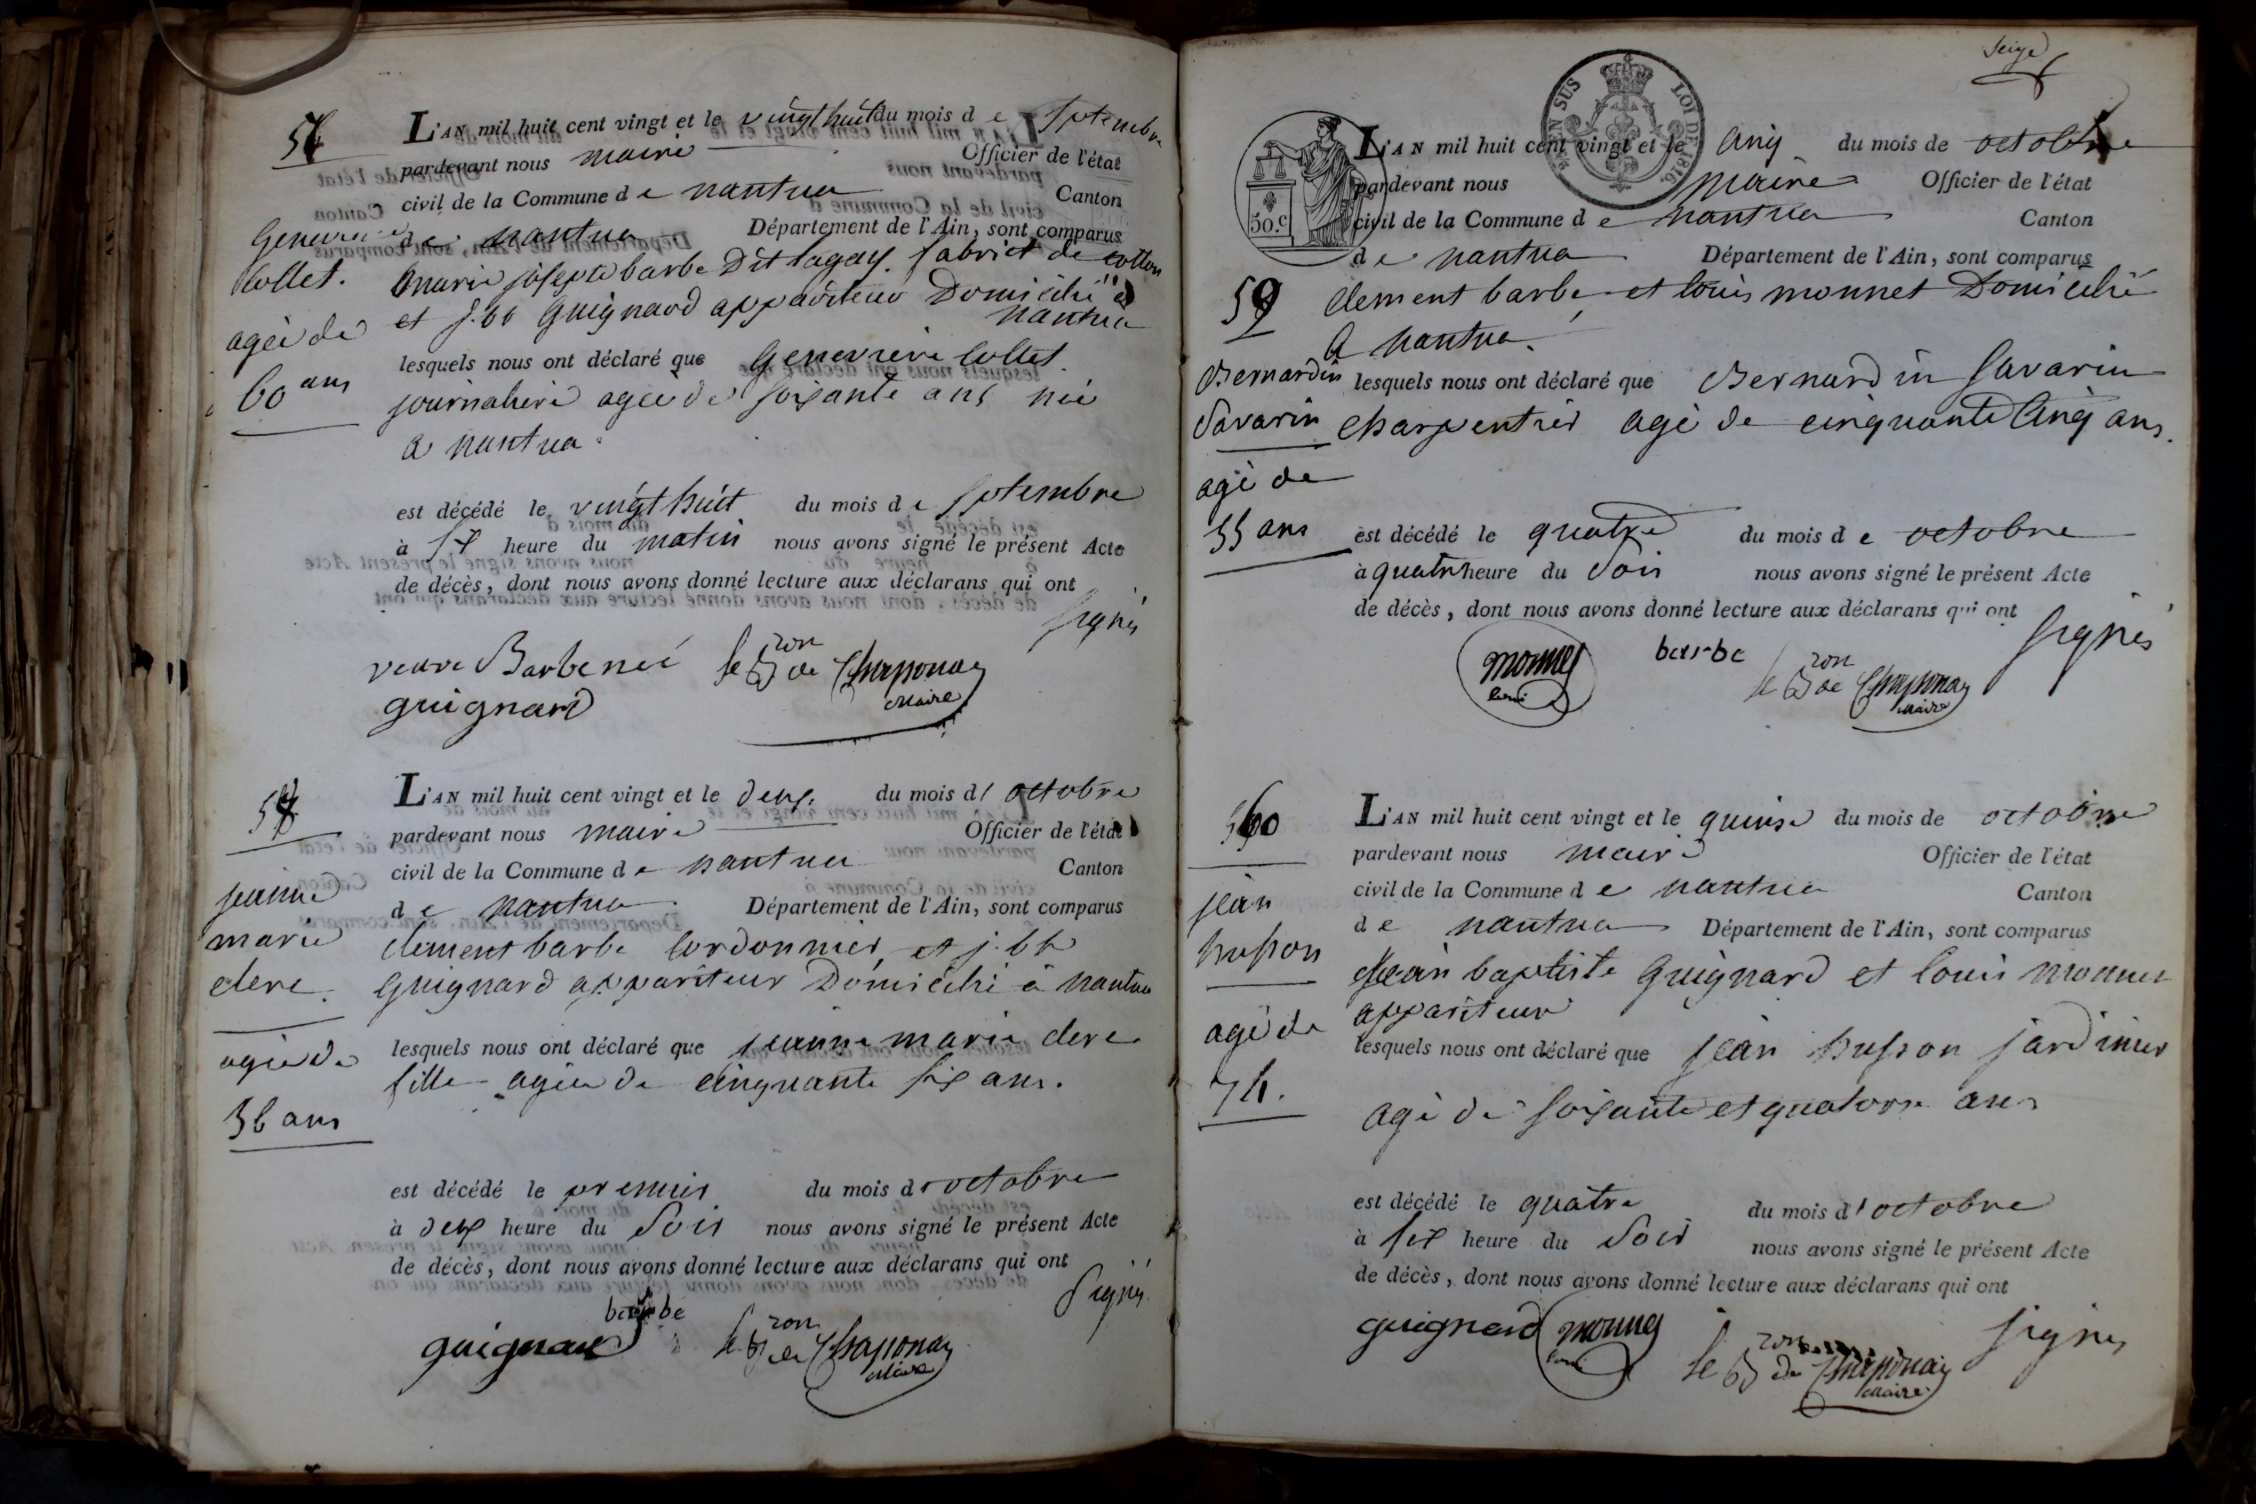 L'AN mil huit cent vingt et le vingt huit du mois de septembre
pardevant nous maire Officier de l'état
civil de la Commune de nantua Canton
de nantua Département de l'Ain, sont comparus
marie josepte barbe Dit lagay fabrict de cotton
et j. bt Guignard appariteur Domicilié a
nantua
Genevieve
Collet.
agée de
60 ans
lesquels nous ont déclaré que Genevieve Collet
journaliere agée de soixante ans née
a nantua.
est décédé le vingt huit du mois de septembre
à six heure du matin nous avons signé le présent Acte
de décès, dont nous avons donné lecture aux déclarans qui ont
signés
veuve Barbe neé
guignard
le Bon de Chapponay
Maire
L'AN mil huit cent vingt et le deux du mois d'octobre
pardevant nous maire Officier de l'état
civil de la Commune de nantua Canton
de nantua Département de l'Ain, sont comparus
jeanne
marie
clerc.
agée de
56 ans
clement barbe Cordonnier et j. bt
Guignard appariteur Domicilié à nantua
lesquels nous ont déclaré que jeanne marie clerc
fille agée de cinquante six ans.
est décédé le premier du mois d'octobre
à deux heure du soir nous avons signé le présent Acte
de décès, dont nous avons donné lecture aux déclarans qui ont
signés
barbe
guignard
le Bon de Chapponay
Maire
Seize
EN SUS LOI DE 1816.
50.c
L'AN mil huit cent vingt et le cinq du mois de octobre
pardevant nous maire Officier de l'état
civil de la Commune de nantua Canton
de nantua Département de l'Ain, sont comparus
59
clement barbe et louis monnet Domicilié
a nantua.
Bernardin
Savarin
agé de
55 ans
lesquels nous ont déclaré que Bernardin Savarin
charpentier agé de cinquante cinq ans.
est décédé le quatre du mois de octobre
à quatre heure du soir nous avons signé le présent Acte
de décès, dont nous avons donné lecture aux déclarans qui ont
signés
monnet
louis
barbe
le Bon de Chapponay
Maire
60
L'AN mil huit cent vingt et le quinse du mois de octobre
pardevant nous maire Officier de l'état
civil de la Commune de nantua Canton
de nantua Département de l'Ain, sont comparus
jean
husson
agé de
74.
jean baptiste Guignard et louis monnet
appariteur
lesquels nous ont déclaré que jean husson jardinier
agé de soixante et quatorse ans
est décédé le quatre du mois d'octobre
à six heure du soir nous avons signé le présent Acte
de décès, dont nous avons donné lecture aux déclarans qui ont
signés
guignard
monnet
louis
le Bon de Chapponay
Maire